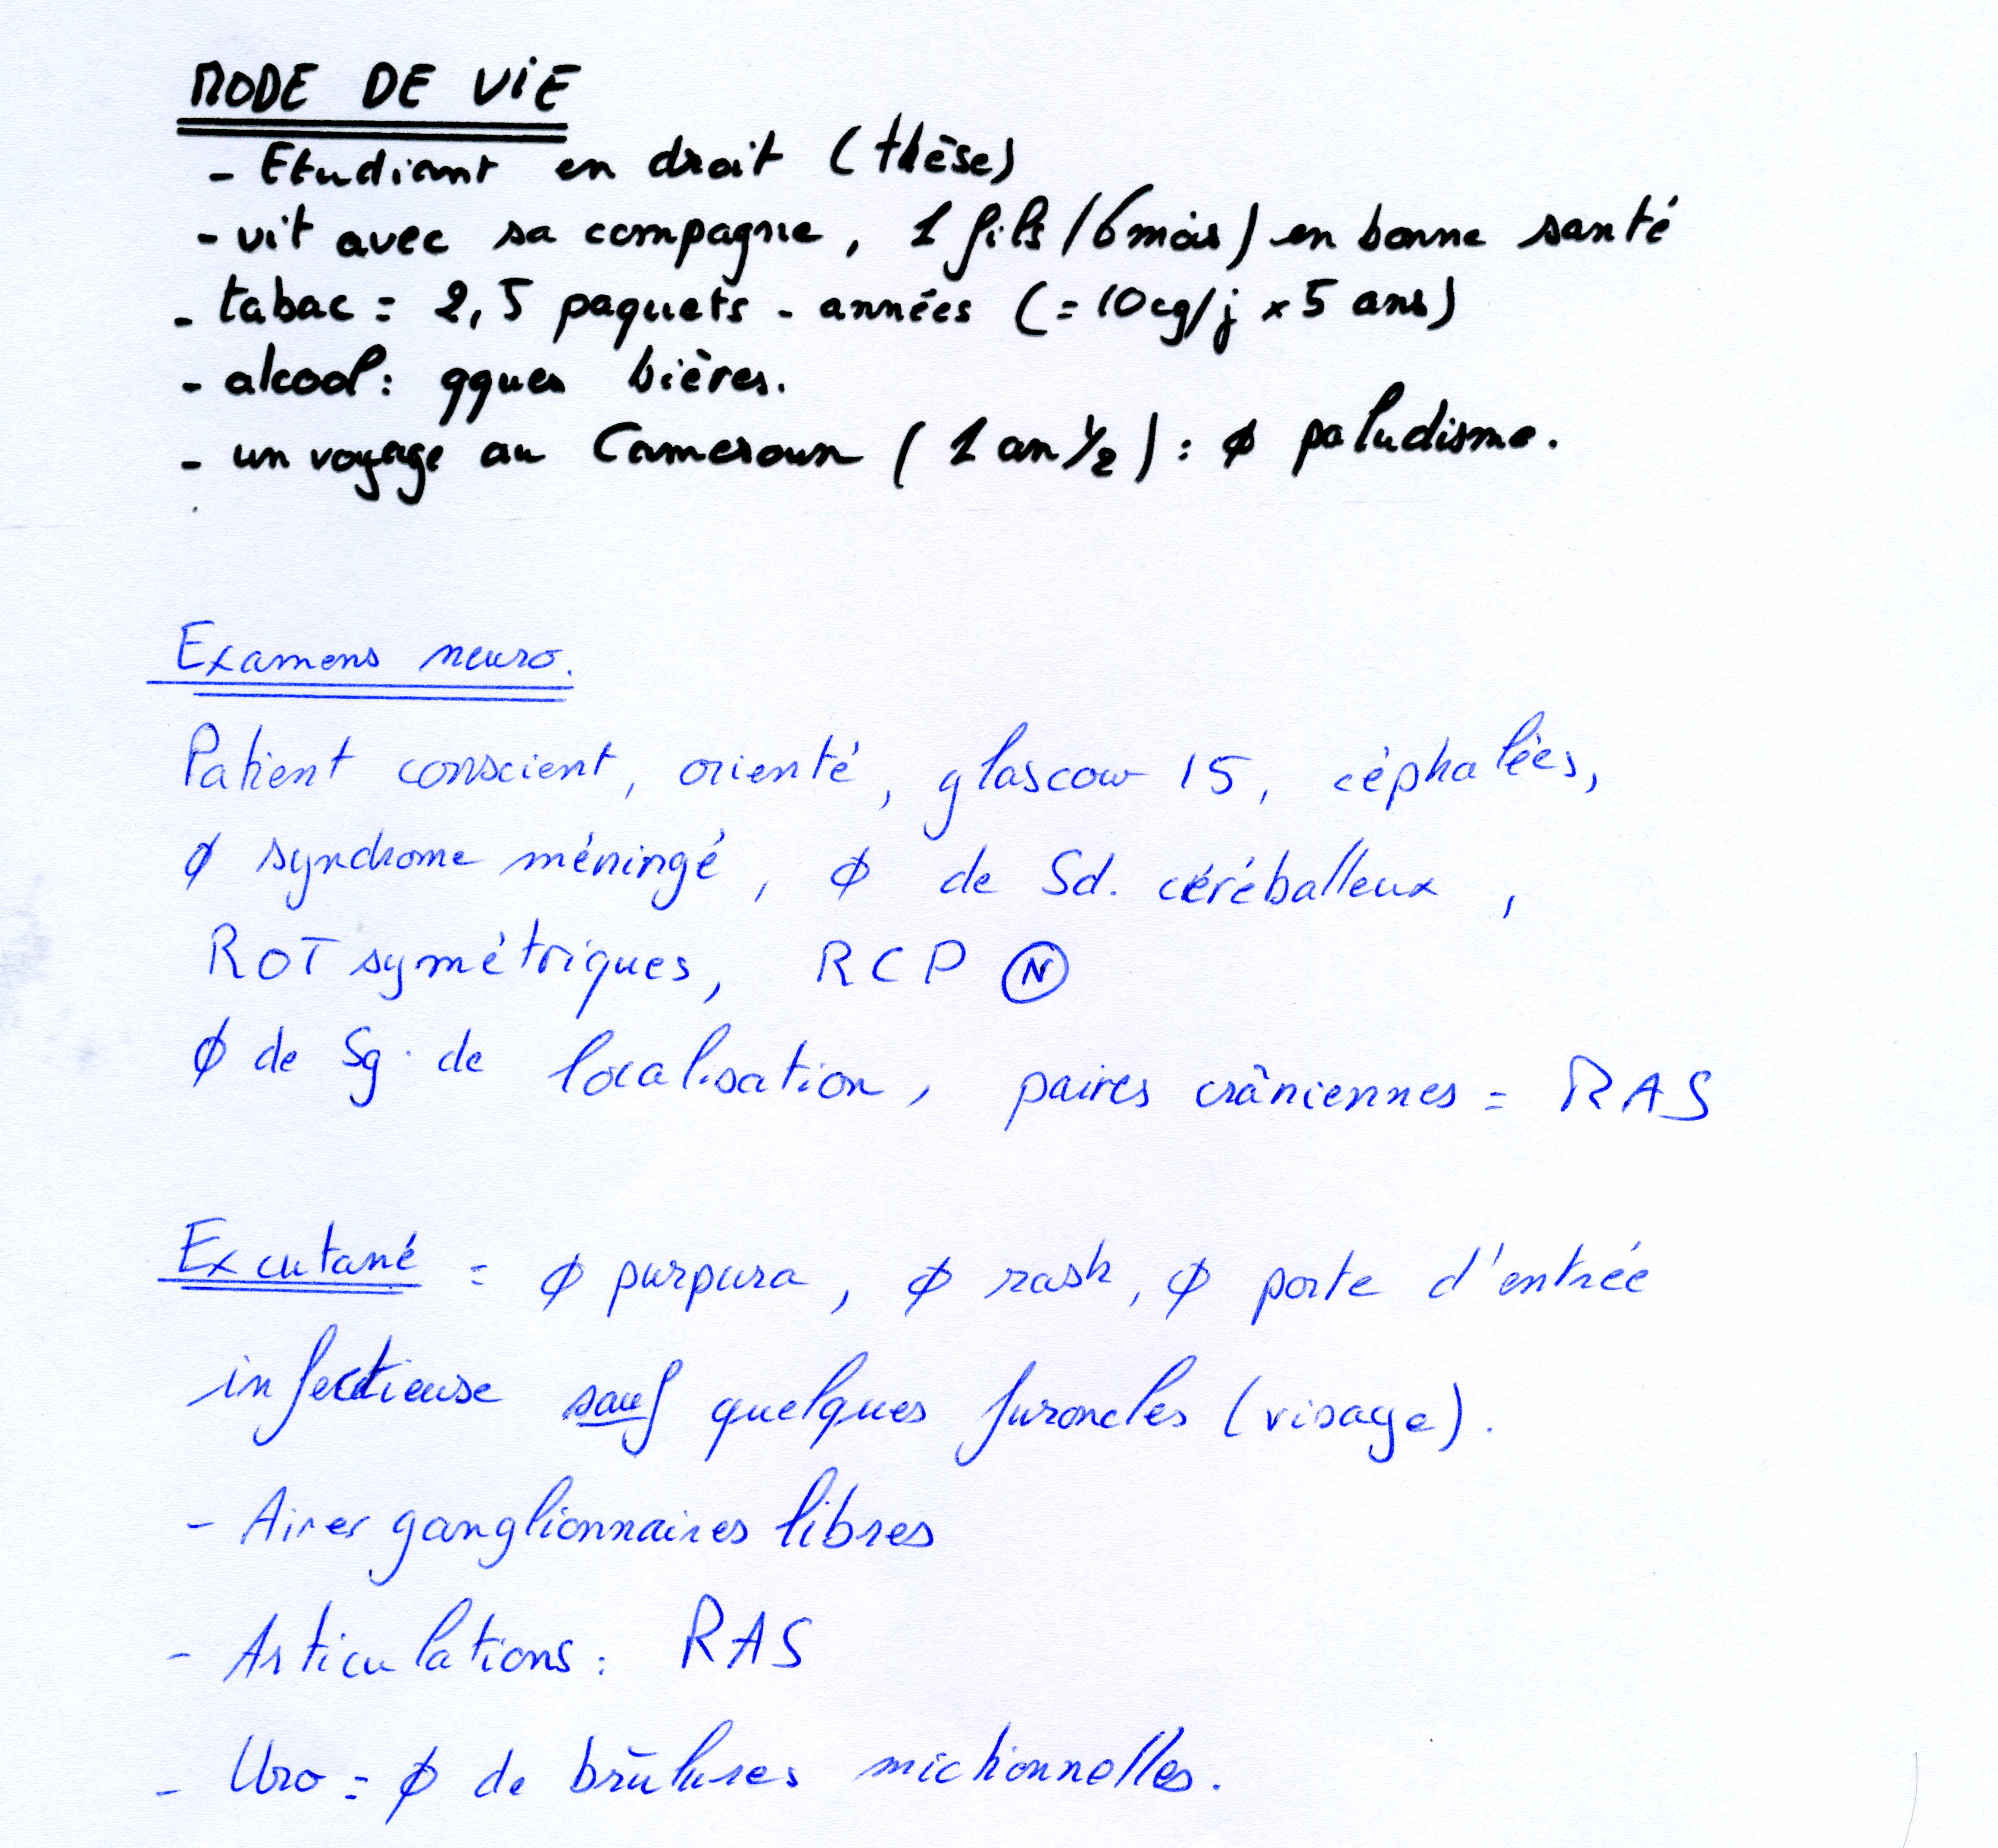 MODE DE ViE
- Etudiant en droit (thèse)
- vit avec sa compagne, 1 fils (6 mois) en bonne santé
- tabac = 2,5 paquets - années (= 10 cg/j × 5 ans)
- alcool : qques bières.
- un voyage au Cameroun (1 an 1/2) : ∅ paludisme.
Examens neuro.
Patient conscient, orienté, glascow 15, céphalées,
∅ syndrome méningé, ∅ de Sd. céréballeux,
ROT symétriques, RCP Ⓝ
∅ de Sg. de localisation, paires crâniennes = RAS
Ex cutané = ∅ purpura, ∅ rash, ∅ porte d'entrée
infectieuse sauf quelques furoncles (visage).
- Aires ganglionnaires libres
- Articulations : RAS
- Uro = ∅ de brûlures mictionnelles.